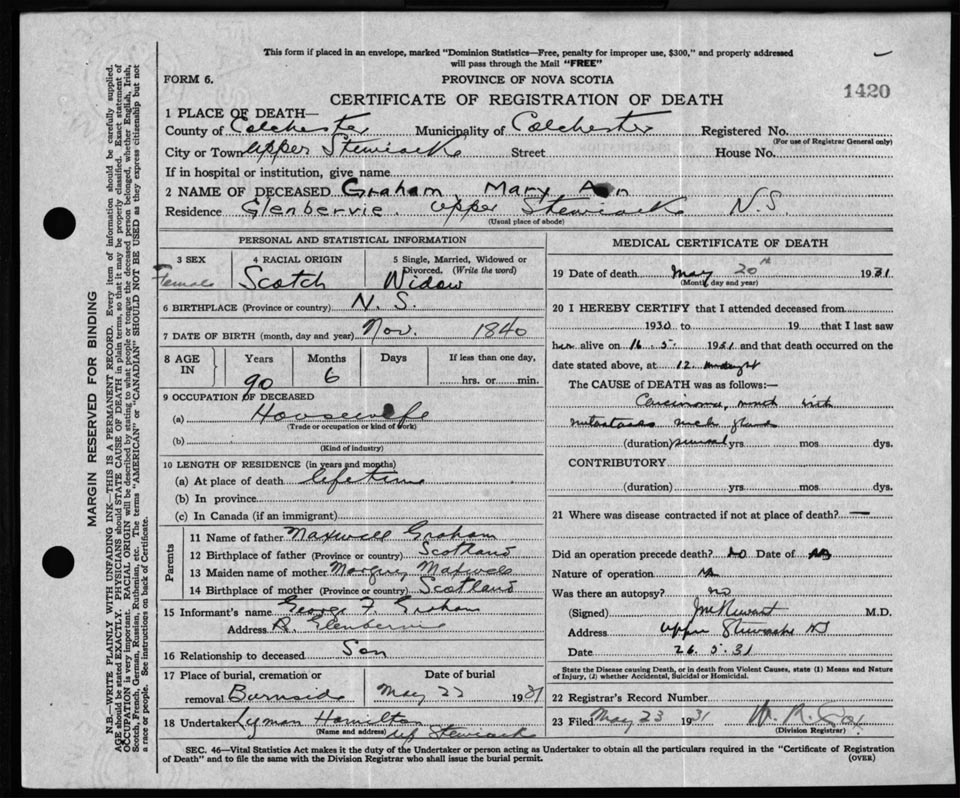 This form if placed in an envelope, marked "Dominion Statistics—Free, penalty for improper use, $300," and properly addressed
will pass through the Mail "FREE"
FORM 6.
PROVINCE OF NOVA SCOTIA
1420
CERTIFICATE OF REGISTRATION OF DEATH
1 PLACE OF DEATH—
County of Colchester Municipality of Colchester Registered No.
(For use of Registrar General only)
City or Town Upper Stewiacke Street House No.
If in hospital or institution, give name
2 NAME OF DECEASED Graham, Mary Ann
Residence Glenbervie. Upper Stewiacke N.S.
(Usual place of abode)
PERSONAL AND STATISTICAL INFORMATION
3 SEX 4 RACIAL ORIGIN 5 Single, Married, Widowed or
Divorced. (Write the word)
Female Scotch Widow
6 BIRTHPLACE (Province or country) N. S.
7 DATE OF BIRTH (month, day and year) Nov. 1840
8 AGE IN Years Months Days If less than one day,
90 6 hrs. or min.
9 OCCUPATION OF DECEASED
(a) Housewife
(Trade or occupation or kind of work)
(b)
(Kind of industry)
10 LENGTH OF RESIDENCE (in years and months)
(a) At place of death lifetime
(b) In province
(c) In Canada (if an immigrant)
Parents
11 Name of father Maxwell Graham
12 Birthplace of father (Province or country) Scotland
13 Maiden name of mother Maxwell
14 Birthplace of mother (Province or country) Scotland
15 Informant's name George F. Graham
Address R. Glenbervie
16 Relationship to deceased Son
17 Place of burial, cremation or Date of burial
removal Burnside May 22 1931
18 Undertaker Lyman Hamilton
(Name and address) Up Stewiacke
MEDICAL CERTIFICATE OF DEATH
19 Date of death May 20th 1931
(Month, day and year)
20 I HEREBY CERTIFY that I attended deceased from
1930 to 19 that I last saw
her alive on 16 . 5 . 1931 and that death occurred on
date stated above, at 12 midnight
The CAUSE of DEATH was as follows:—
Carcinoma, mouth with
metastases neck glands
(duration) several yrs. mos. dys.
CONTRIBUTORY
(duration) yrs. mos. dys.
21 Where was disease contracted if not at place of death? —
Did an operation precede death? no Date of no
Nature of operation no
Was there an autopsy? no
(Signed) M.D.
Address Upper Stewiacke NS
Date 26. 5. 31
State the Disease causing Death, or in death from Violent Causes, state (1) Means and Nature
of Injury, (2) whether Accidental, Suicidal or Homicidal.
22 Registrar's Record Number
23 Filed May 23 1931 W. R.
(Division Registrar)
SEC. 46—Vital Statistics Act makes it the duty of the Undertaker or person acting as Undertaker to obtain all the particulars required in the "Certificate of Registration
of Death" and to file the same with the Division Registrar who shall issue the burial permit. (OVER)
MARGIN RESERVED FOR BINDING
N.B.—WRITE PLAINLY WITH UNFADING INK—THIS IS A PERMANENT RECORD. Every item of information should be carefully supplied.
AGE should be stated EXACTLY. PHYSICIANS should STATE CAUSE OF DEATH in plain terms, so that it may be properly classified. Exact statement of
OCCUPATION is very important. RACIAL ORIGIN will be described by stating to what people or tongue the deceased person belonged, whether English, Irish,
Scotch, French, German, Russian, Ruthenian, etc. The terms "AMERICAN" or "CANADIAN" SHOULD NOT BE USED as they express citizenship but not
a race or people. See instructions on back of Certificate.